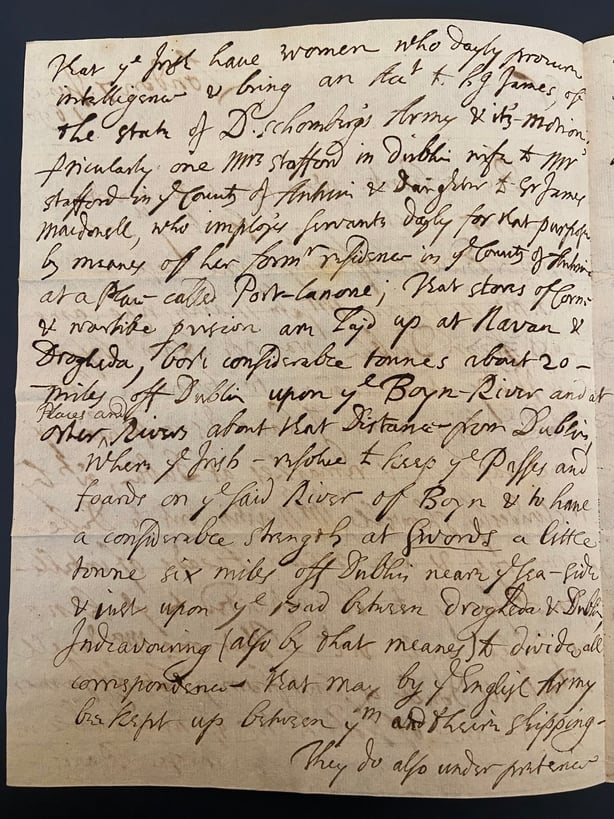 that ye Irish have women who dayly procure
intelligence & bring an Acct to Kg James, of
the state of D. Schomberg's Army & its motion,
pticularly one Mrs Stafford in Dublin wife to Mr
Stafford in ye County of Antrim & Daughter to Sr James
Macdonell, who imployes servants dayly for that purpose
by meanes of her formr residence in ye County of Antrim
at a Place called Port-Lanone; that stores of Corne
& warlike pvision are lay'd up at Navan &
Drogheda, both considerable tounes about 20-
miles off Dublin upon ye Boyn-River and at
Places and
other Rivers about that Distance from Dublin,
Where ye Irish - resolve to keep ye Passes and
foards on ye said River of Boyn & to have
a considerable strength at Swords a little
toune six miles off Dublin neare ye sea-side
& just upon ye road between Drogheda & Dublin
Indeavouring (also by that meanes) to divide all
correspondence that may by ye English Army
bee kept up between ym and their shipping-
They do also under pretence